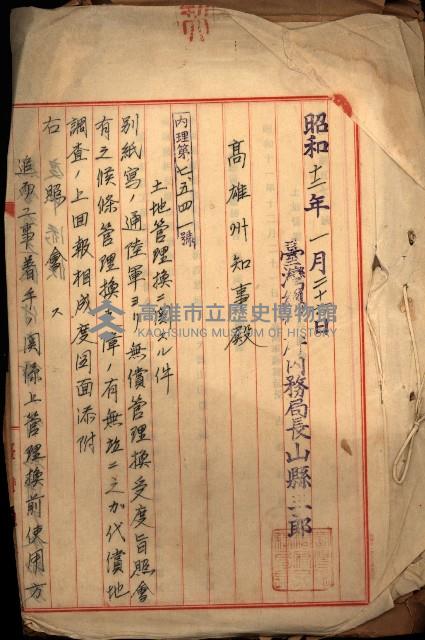 昭和十二年一月二十日
臺灣總 內務局長山縣三郎
高雄州知事殿
內理第七五四一號
土地管理換ニ關スル件
別紙寫ノ通陸軍ヨリ無償管理換受度旨照會
有之候條管理換支障ノ有無竝ニ之力代償地
調査ノ上回報相成度図面添附
右照會ス
追而工事着手ノ関係上管理換前使用方
高雄市立歷史博物館
KAOHSIUNG MUSEUM OF HISTORY